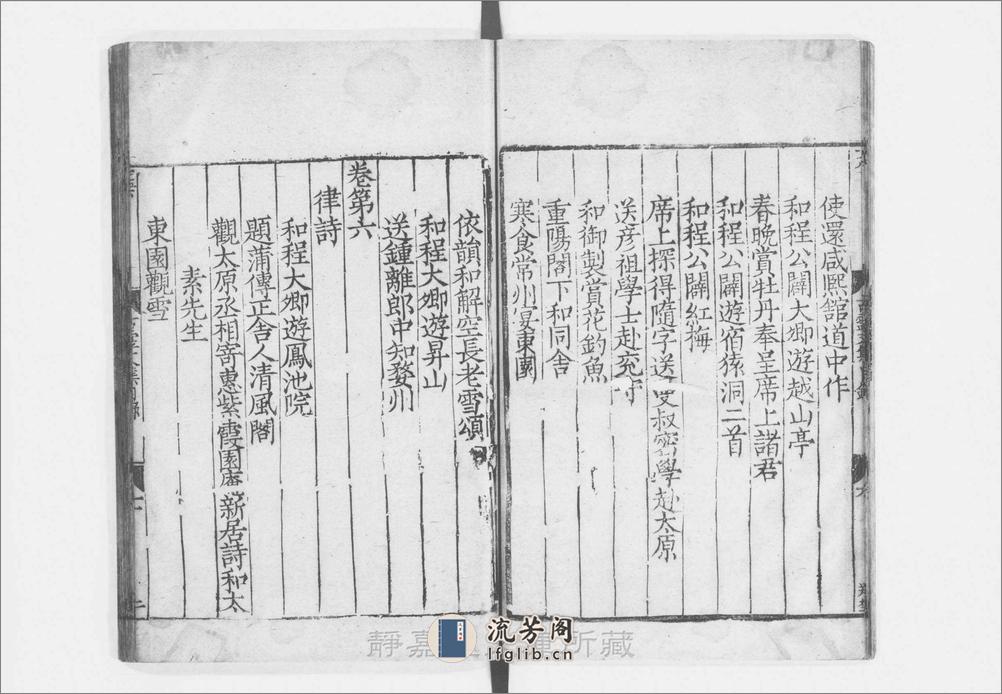 使還咸熙館道中作
和程公闢大卿遊越山亭
春晚賞牡丹奉呈席上諸君
和程公闢遊宿猿洞二首
和程公闢紅梅
席上探得隨字送叔密學赴太原
送彦祖學士赴兖
和御製賞花釣魚
重陽閣下和同舍
寒食常州宴東園
依韻和解空長老雪頌
和程大卿遊昇山
送鍾離郎中知婺州
卷第六
律詩
和程大卿遊鳳池院
題蒲傳正舍人清風閣
觀太原丞相寄惠紫霞園庵新居詩和太
素先生
東園觀雪
靜嘉所藏
流芳阁
lfglib.cn